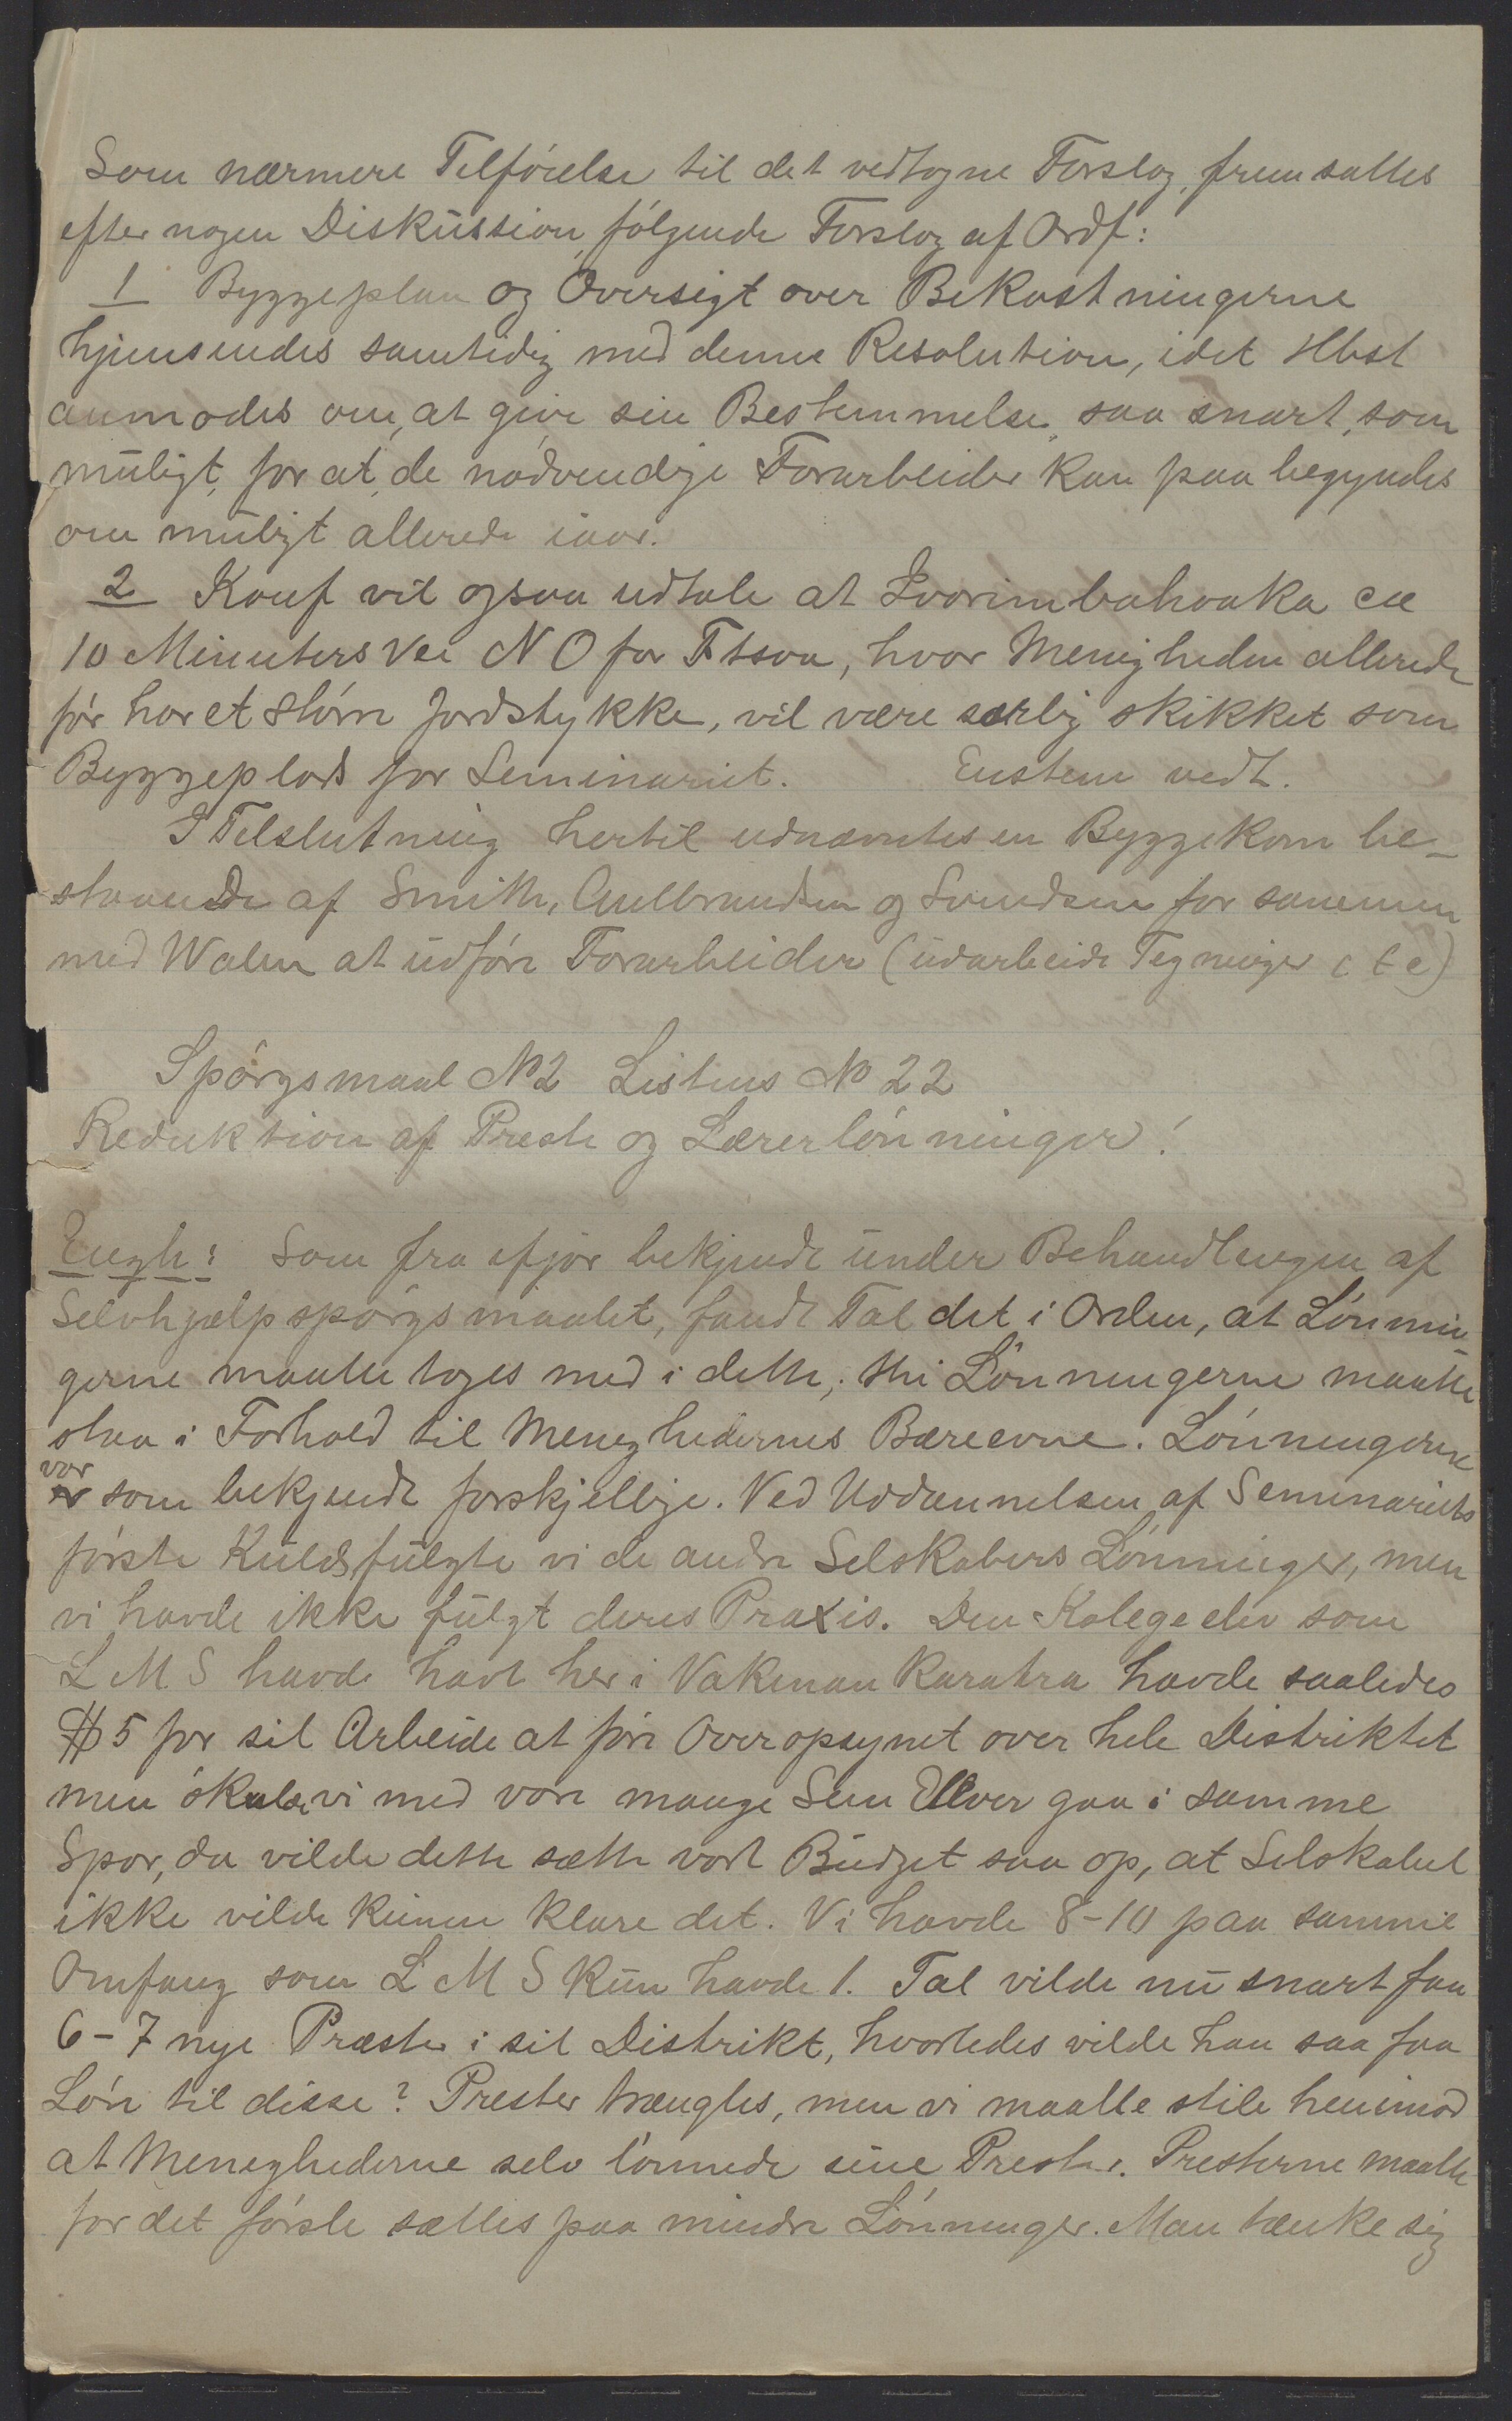 Som nærmere Tilföielse til det vedtagne Forslag, fremsattes
efter nogen Diskussion følgende Forslag af Ordf:
1 Byggeplan og Oversigt over Bekostningerne
hjemsendes samtidig med denne Resolution, idet Hbst
anmodes om, at give sin Bestemmelse, saa snart, som
muligt, for at, de nødvendige Forarbeider kan paa begyndes
om muligt allerede iaar.
2 Konf vil ogsaa udtale at Ivorimbahoaka ca
10 Minuters Vei N O for Ftsoa, hvor Menigheden allerede
før har et større Jordstykke, vil være særlig skikket som
Byggeplads for Seminariet. Enstem vedt.
I Tilslutning hertil udnævntes en Byggekom be-
staaende af Smith, Gulbrandsen og Svendsen for sammen
med Walen at udføre Forarbeider (udarbeide Tegninger etc)
Spørgsmaal No 2 Listens No 22
Reduktion af Preste og Lærerlønninger!
Engh: Som fra ifjor bekjendt under Behandlingen af
Selvhjælpspørgsmaalet, fandt Tal det i Orden, at Lønnin
gerne maatte tages med i dette; thi Lønningerne maatte
staa i Forhold til Menighedernes Bæreevne. Lønningerne
var som bekjendt forskjellige. Ved Uddannelsen af Seminariets
første Kuld fulgte vi de andre Selskabers Lønninger, men
vi havde ikke fulgt deres Praxis. Den Kolegeelev som
L M S havde havt her i Vakinankaratra havde saaledes
$ 5 for sit Arbeide at føre Overopsynet over hele Distriktet
men skulde vi med vore mange Sem Elever gaa i samme
Spor, da vilde dette sætte vort Budget saa op, at Selskabet
ikke vilde kunne klare det. Vi havde 8-10 paa samme
Omfang som L M S kun havde 1. Tal vilde nu snart faa
6-7 nye Præster i sit Distrikt, hvorledes vilde han saa faa
Løn til disse? Prester trængtes, men vi maatte stile henimod
at Menighederne selv lønnede sine Prester. Presterne maatte
for det første sættes paa mindre Lønninger. Man tænke sig